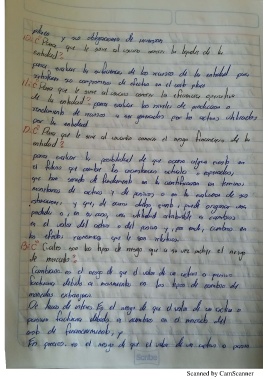 plazo y sus obligaciones de inversión
10.C ¿Para que le sirve al usuario conocer la liquidez de la
entidad?
para evaluar la suficiencia de los recursos de la entidad para
satisfacer sus compromisos de efectivo en el corto plazo
11.C ¿Para que le sirve al usuario conocer la eficiencia operativa
de la entidad? para evaluar los niveles de producción o
rendimiento de recursos a ser generados por los activos utilizados
por la entidad
12.C ¿Para que le sirve al usuario conocer el riesgo financiero de la
entidad?
para evaluar la posibilidad de que ocurra algun evento en
el futuro que cambie las circunstancias actuales o esperadas,
que han servido de fundamento en la cuantificación en terminos
monetarios de activos y de pasivos o en la valuación de sus
estimaciones, y que, de ocurrir dicho evento, puede originar una
perdida o, en su caso, una utilidad atribuible a cambios
en el valor del activo o del pasivo y, por ende, cambios en
los efectos económicos que le son relativos
13.C ¿Cuales son los tipos de riesgo que a su vez incluye el riesgo
de mercado?
Cambiario: es el riesgo de que el valor de un activo o pasivo
fluctuara debido a movimientos en los tipos de cambio de
monedas extranjeras
De tasas de interes: Es el riesgo de que el valor de un activo o
pasivo fluctuara debido a cambios en el mercado del
costo de financiamiento, y
En precios: es el riesgo de que el valor de un activo o pasivo
Scribe
Scanned by CamScanner